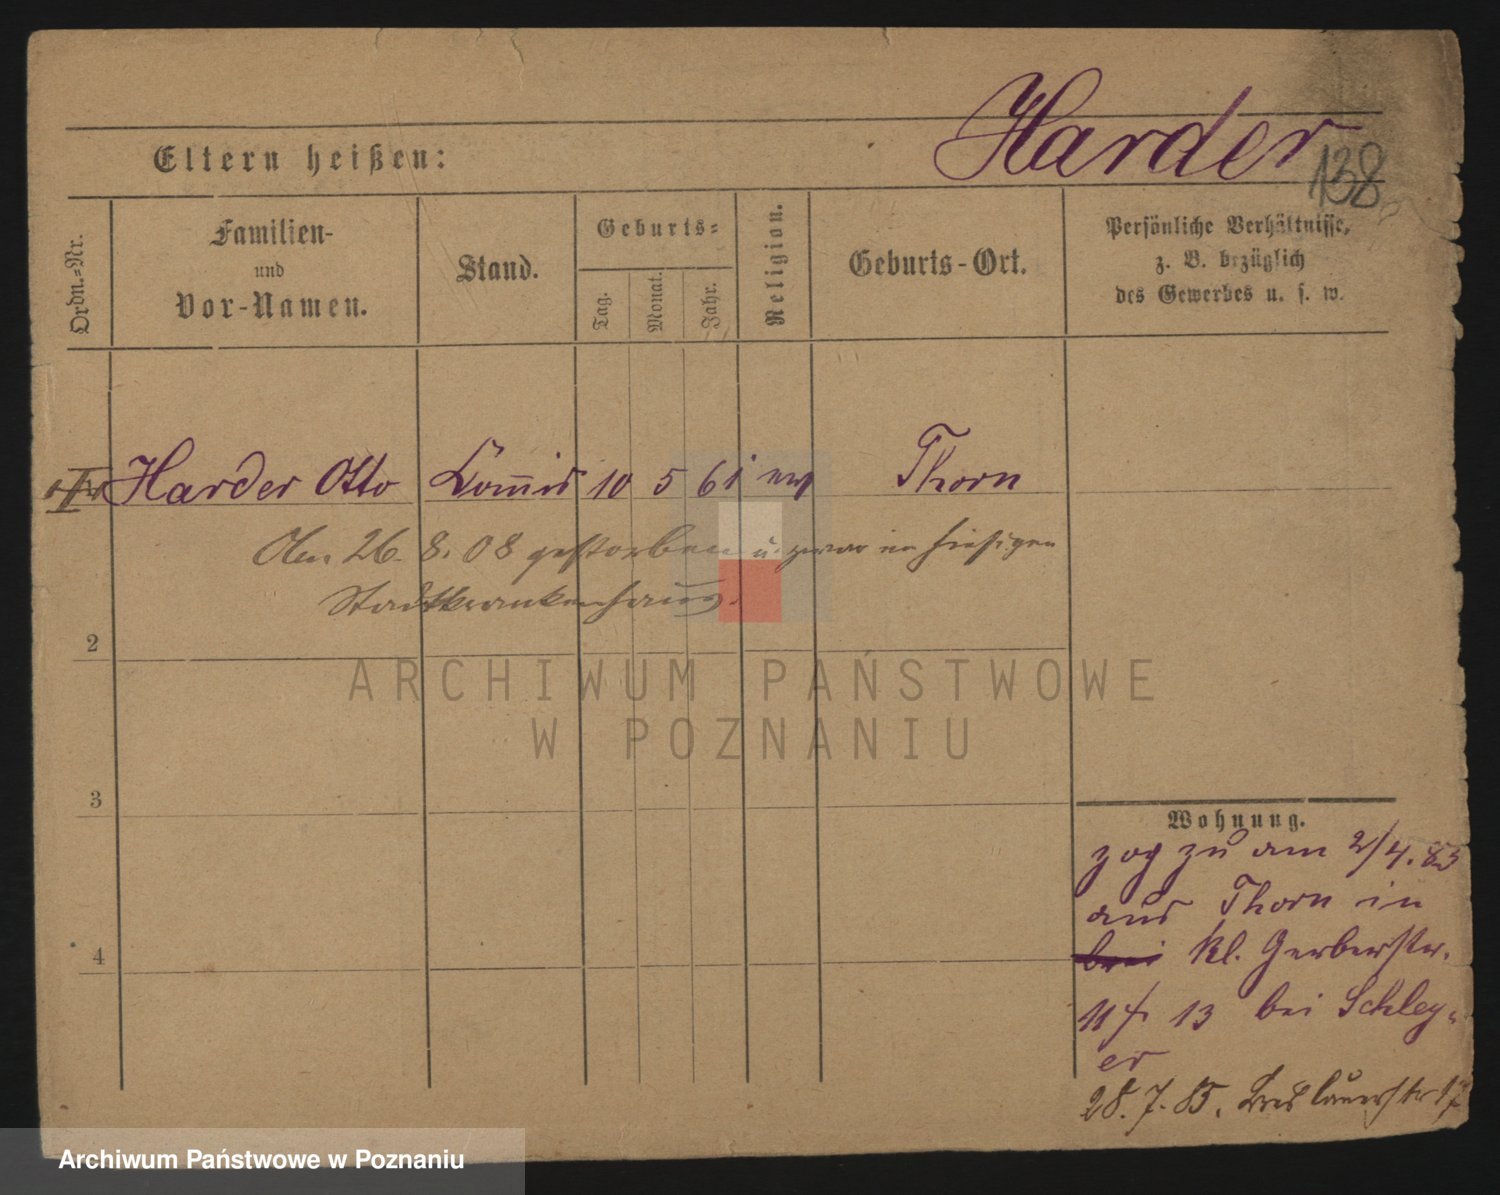 Harder
138
Eltern heißen:
Ordn.-Nr.
Familien-
und
Vor-Namen.
Stand.
Geburts-
Tag.
Monat.
Jahr.
Religion.
Geburts-Ort.
Persönliche Verhältnisse,
z. B. bezüglich
des Gewerbes u. s. w.
Harder Otto Com̅is 10 5 61 Thorn
Am 26. 8. 08 gestorben u. zwar im hiesigen
Stadtkrankenhaus.
2
3
4
Wohnung.
zog zu am 2/4. 83
aus Thorn in
bei kl. Gerberstr.
13 bei Schley-
er
28. 7. 85. Breslauerstr 17
ARCHIWUM PAŃSTWOWE
W POZNANIU
Archiwum Państwowe w Poznaniu